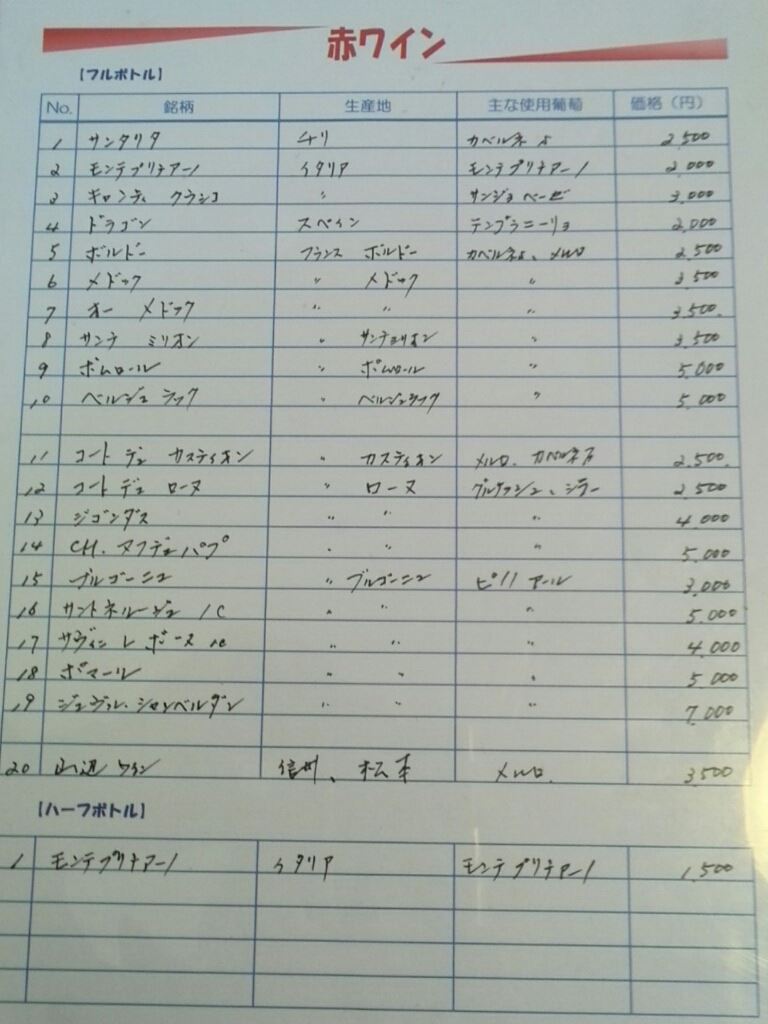 赤ワイン
【フルボトル】
No. 銘柄 生産地 主な使用葡萄 価格（円）
1 サンタリタ チリ カベルネ・S 2,500
2 モンテプリチアーノ イタリア モンテプリチアーノ 2,000
3 キャンティ クラシコ 〃 サンジョベーゼ 3,000
4 ドラゴン スペイン テンプラニーリョ 2,000
5 ボルドー フランス ボルドー カベルネS、メルロ 2,500
6 メドック 〃 メドック 〃 3,500
7 オー メドック 〃 〃 〃 3,500
8 サンテ ミリオン 〃 サンテミリオン 〃 3,500
9 ポムロール 〃 ポムロール 〃 5,000
10 ベルジュラック 〃 ベルジュラック 〃 5,000
11 コート デュ カスティオン 〃 カスティオン メルロ、カベルネ 2,500
12 コート デュ ローヌ 〃 ローヌ グルナッシュ、シラー 2,500
13 ジゴンダス 〃 〃 〃 4,000
14 CH. ヌフデュパプ 〃 〃 〃 5,000
15 ブルゴーニュ 〃 ブルゴーニュ ピノノアール 3,000
16 サントネルージュ 1C 〃 〃 〃 5,000
17 サヴィニ レ ボーヌ 〃 〃 〃 4,000
18 ポマール 〃 〃 〃 5,000
19 ジュヴレ・シャンベルタン 〃 〃 〃 7,000
20 山辺ワイン 信州、松本 メルロ 3,500
【ハーフボトル】
1 モンテプリチアーノ イタリア モンテプリチアーノ 1,500